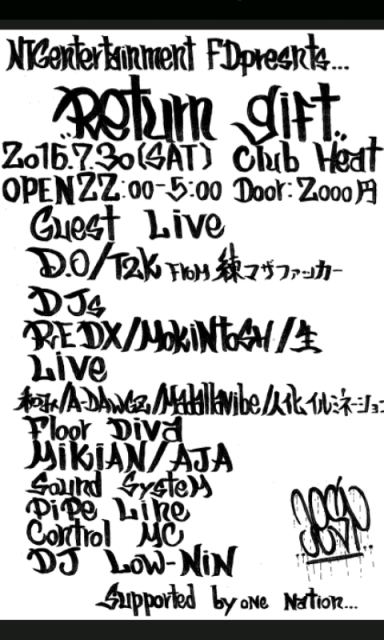 NTGentertainment FDpresnts...
..Return gift..
2016.7.30(SAT) Club Heat
OPEN22:00-5:00 Door:2000円
Guest Live
D.O/T2K From 練マザファッカー
DJs
REDX/MOKiNTOSH/生
Live
/人化イルミネーショ
Floor Diva
MiKiAN/AJA
Sound System
Pipe Line
Control MC
DJ Low-NiN
Supported by one Nation...